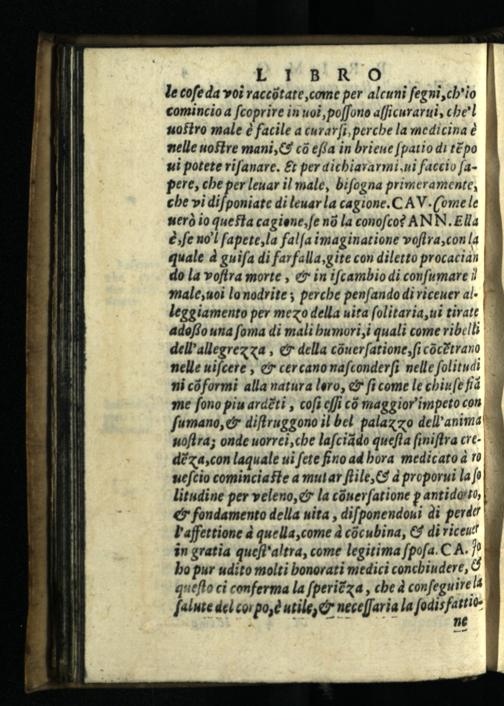 LIBRO
le cose da voi raccōtate, come per alcuni segni, ch'io
comincio a scoprire in uoi, possono assicurarui, che'l
uostro male è facile a curarsi, perche la medicina è
nelle uostre mani, & cō essa in brieue spatio di tēpo
ui potete risanare. Et per dichiararmi, ui faccio sa-
pere, che per leuar il male, bisogna primeramente,
che vi disponiate di leuar la cagione. CAV. Come le
uerò io questa cagione, se nō la conosco? ANN. Ella
è, se no'l sapete, la falsa imaginatione vostra, con la
quale à guisa di farfalla, gite con diletto procacian
do la vostra morte, & in iscambio di consumare il
male, uoi lo nodrite; perche pensando di riceuer al-
leggiamento per mezo della uita solitaria, ui tirate
adosso una soma di mali humori, i quali come ribelli
dell'allegrezza, & della cōuersatione, si cōcētrano
nelle uiscere, & cercano nascondersi nelle solitudi
ni cōformi alla natura loro, & si come le chiuse fiā
me sono piu ardēti, cosi essi cō maggior'impeto con
sumano, & distruggono il bel palazzo dell'anima
uostra; onde uorrei, che lasciādo questa sinistra cre-
dēza, con laquale ui sete fino ad hora medicato à ro
uescio cominciaste a mutar stile, & à proporui la so
litudine per veleno, & la cōuersatione ꝑ antidoto,
& fondamento della uita, disponendoui di perder
l'affettione à quella, come à cōcubina, & di riceuer
in gratia quest'altra, come legitima sposa. CA. Io
ho pur udito molti honorati medici conchiudere, &
questo ci conferma la speriēza, che à conseguire la
salute del corpo, è utile, & necessaria la sodisfattio-
ne